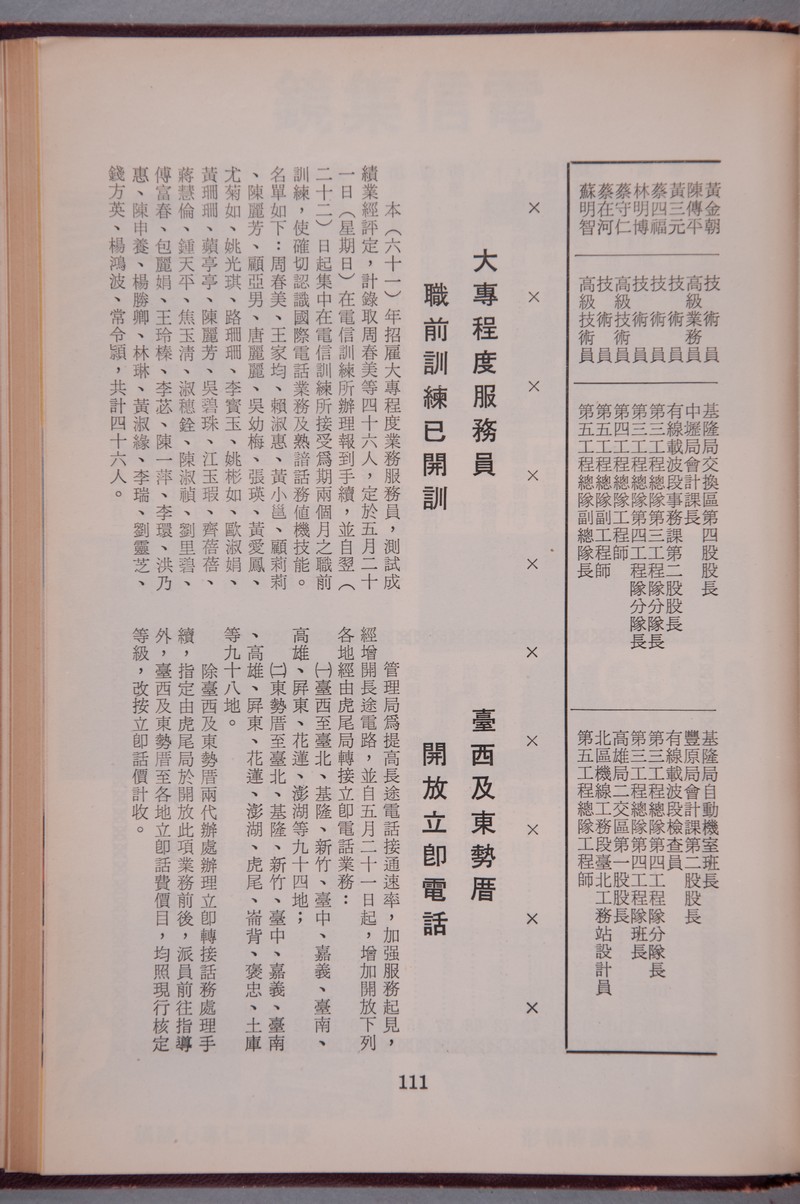 黃金朝 技術員 基隆局交換區第四股股長 基隆局自動機室班長
陳傳平 高級業務員 中壢局會計課長 豐原局會計課第二股股長
黃三元 技術員 有線載波段事務課第二股股長 有線載波段檢查員
蔡四福 技術員 第三工程總隊第三工程隊分隊長 第三工程總隊第四工程隊分隊長
林明博 技術員 第三工程總隊第四工程隊分隊長 第三工程總隊第四工程隊班長
蔡守仁 高級技術員 第四工程總隊工程師 高雄局二交區第一股股長
蔡在河 技術員 第五工程總隊副工程師 北區機線工務段臺北工務站設計員
蘇明智 高級技術員 第五工程總隊副總隊長 第五工程總隊工程師
× × × × × × × × × ×
大專程度服務員
職前訓練已開訓
本（六十一）年招雇大專程度業務服務員，測試成
績業經評定，計錄取周春美等四十六人，定於五月二十
一日（星期日）在電信訓練所辦理報到手續，並自翌（
二十二）日起集中在電信訓練所接受爲期兩個月之職前
訓練，使確切認識國際電話業務及熟諳話務値機技能。
名單如下：周春美、王家均、賴淑惠、黃小邕、顧莉莉
、陳麗芳、顧亞男、唐麗麗、吳幼梅、張瑛、黃愛鳳、
尤菊如、姚光琪、路珊珊、李賓玉、姚彬如、歐淑娟、
黃珊珊、蘋亭亭、陳麗芳、吳碧珠、江玉瑕、齊蓓蓓、
蔣慧倫、鍾天平、焦玉清、淑穗銓、陳淑禎、劉里碧、
傅富春、包麗娟、王玲榛、李苾、陳一萍、李環、洪乃
惠、陳申養、楊勝卿、林琳、黃淑緣、李瑞、劉靈芝、
錢方英、楊鴻波、常令潁，共計四十六人。
臺西及東勢厝
開放立卽電話
管理局爲提高長途電話接通速率，加强服務起見，
經增開長途電路，並自五月二十一日起，增加開放下列
各地經由虎尾局轉接立卽電話業務：
㈠臺西至臺北、基隆、新竹、臺中、嘉義、臺南、
高雄、屏東、花蓮、澎湖等九十四地；
㈡東勢厝至臺北、基隆、新竹、臺中、嘉義、臺南
、高雄、屏東、花蓮、澎湖、虎尾、崙背、褒忠、土庫
等九十八地。
除臺西及東勢厝兩代辦處辦理立卽轉接話務處理手
續，指定由虎尾局於開放此項業務前後，派員前往指導
外，臺西及東勢厝至各地立卽話費價目，均照現行核定
等級，改按立卽話價計收。
111